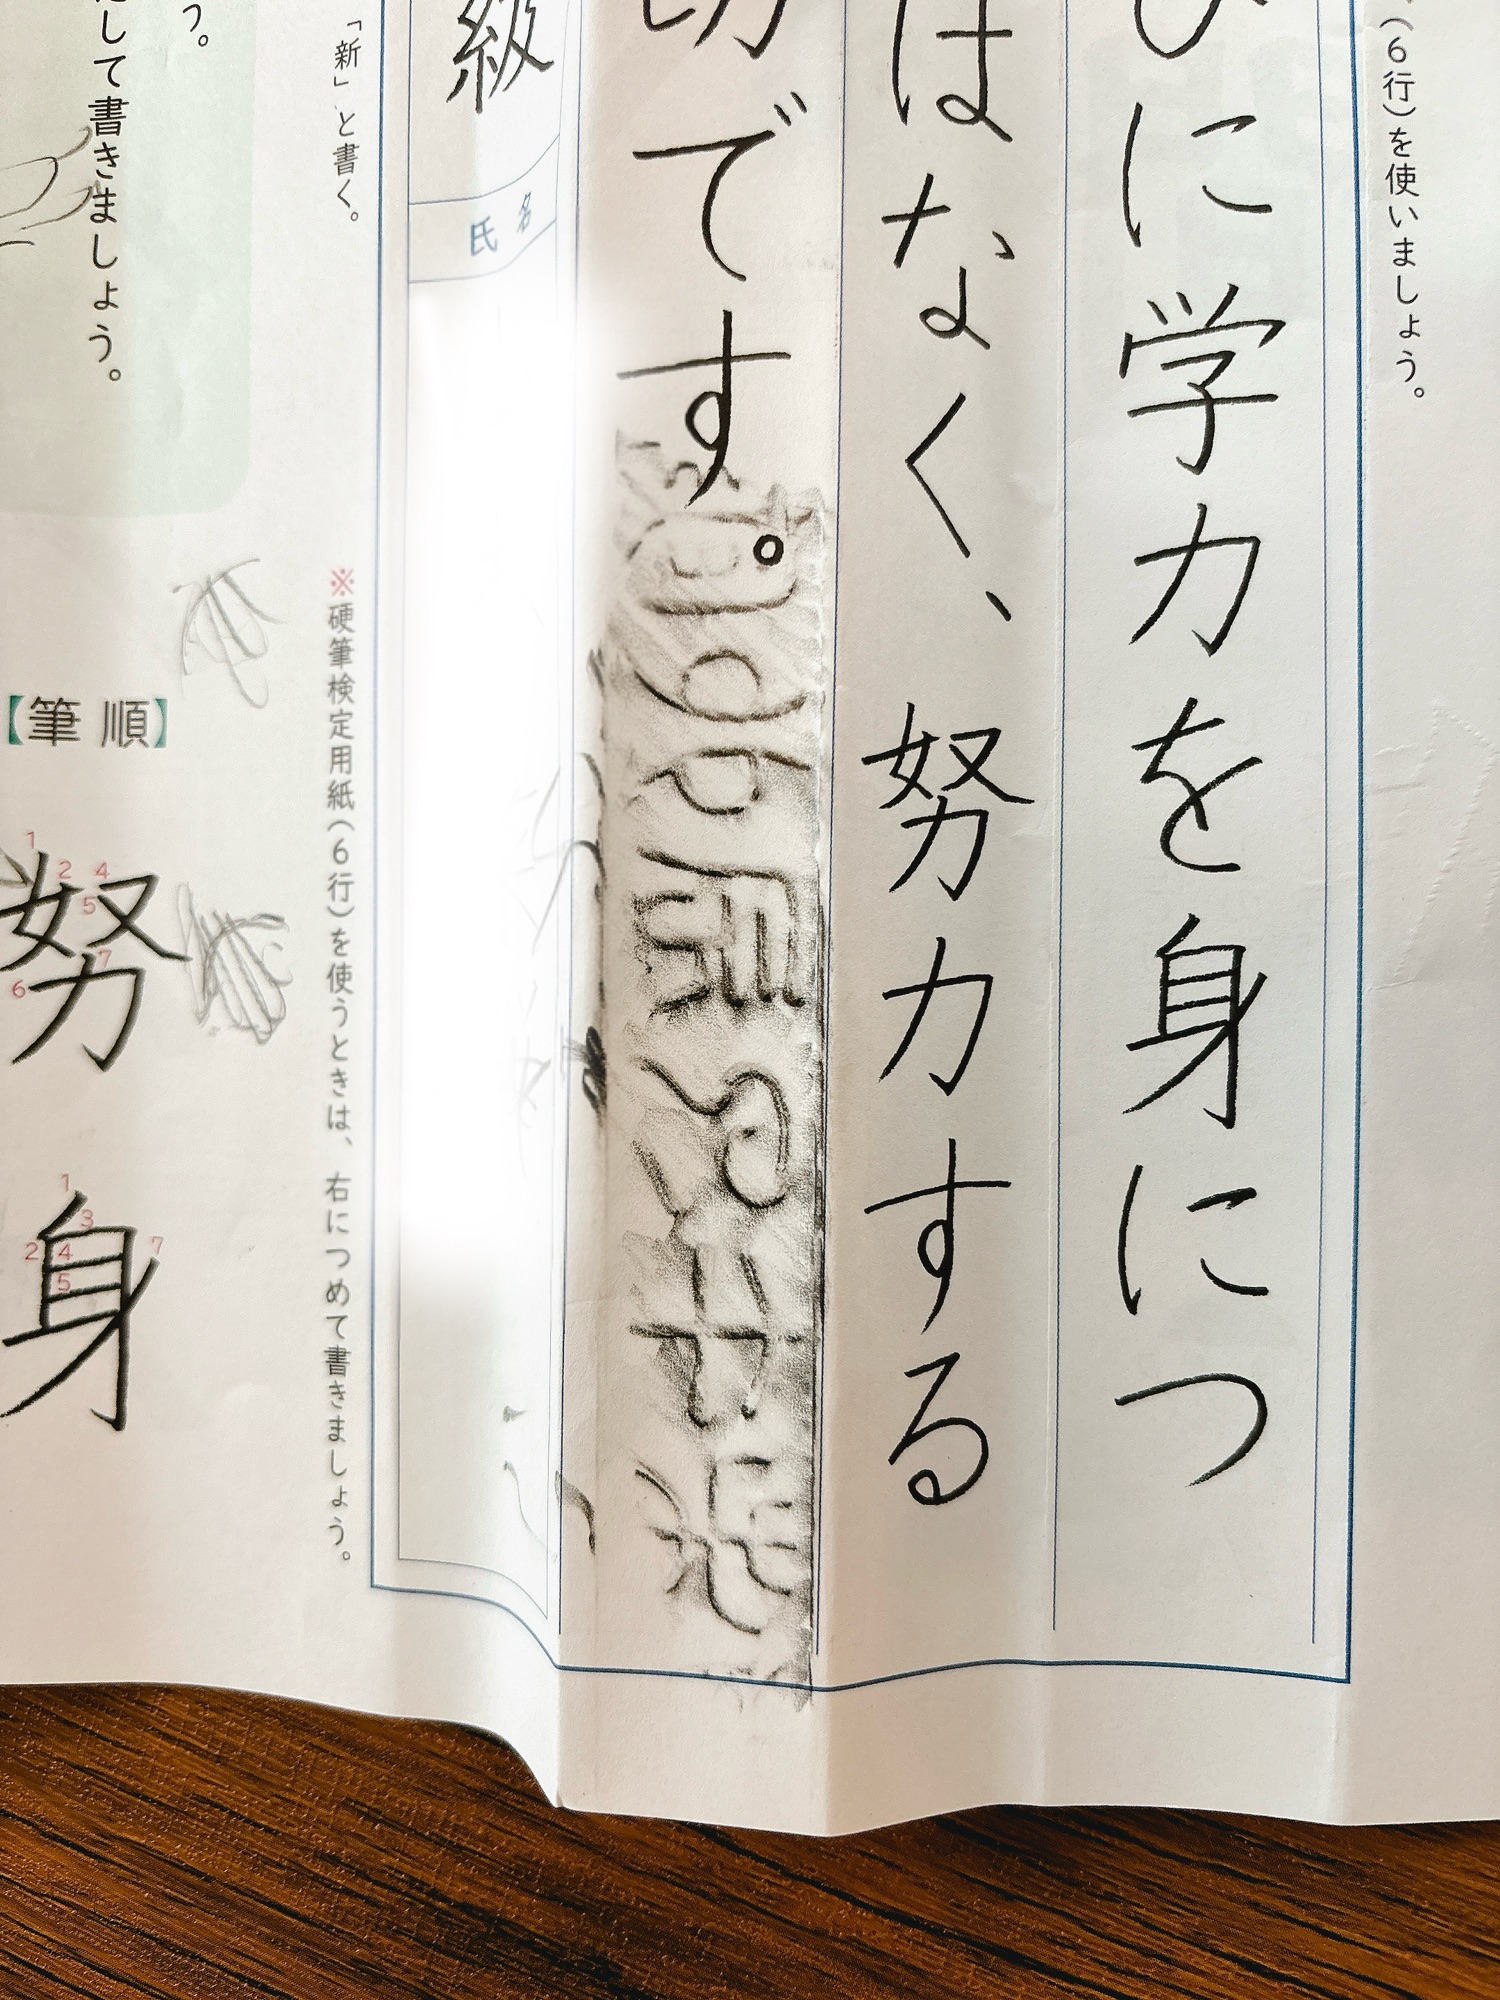 (6行)を使いましょう。
に学力を身につ
はなく、努力する
切です。
級
氏名
「新」と書く。
※硬筆検定用紙(6行)を使うときは、右につめて書きましょう。
して書きましょう。
【筆順】
努
身